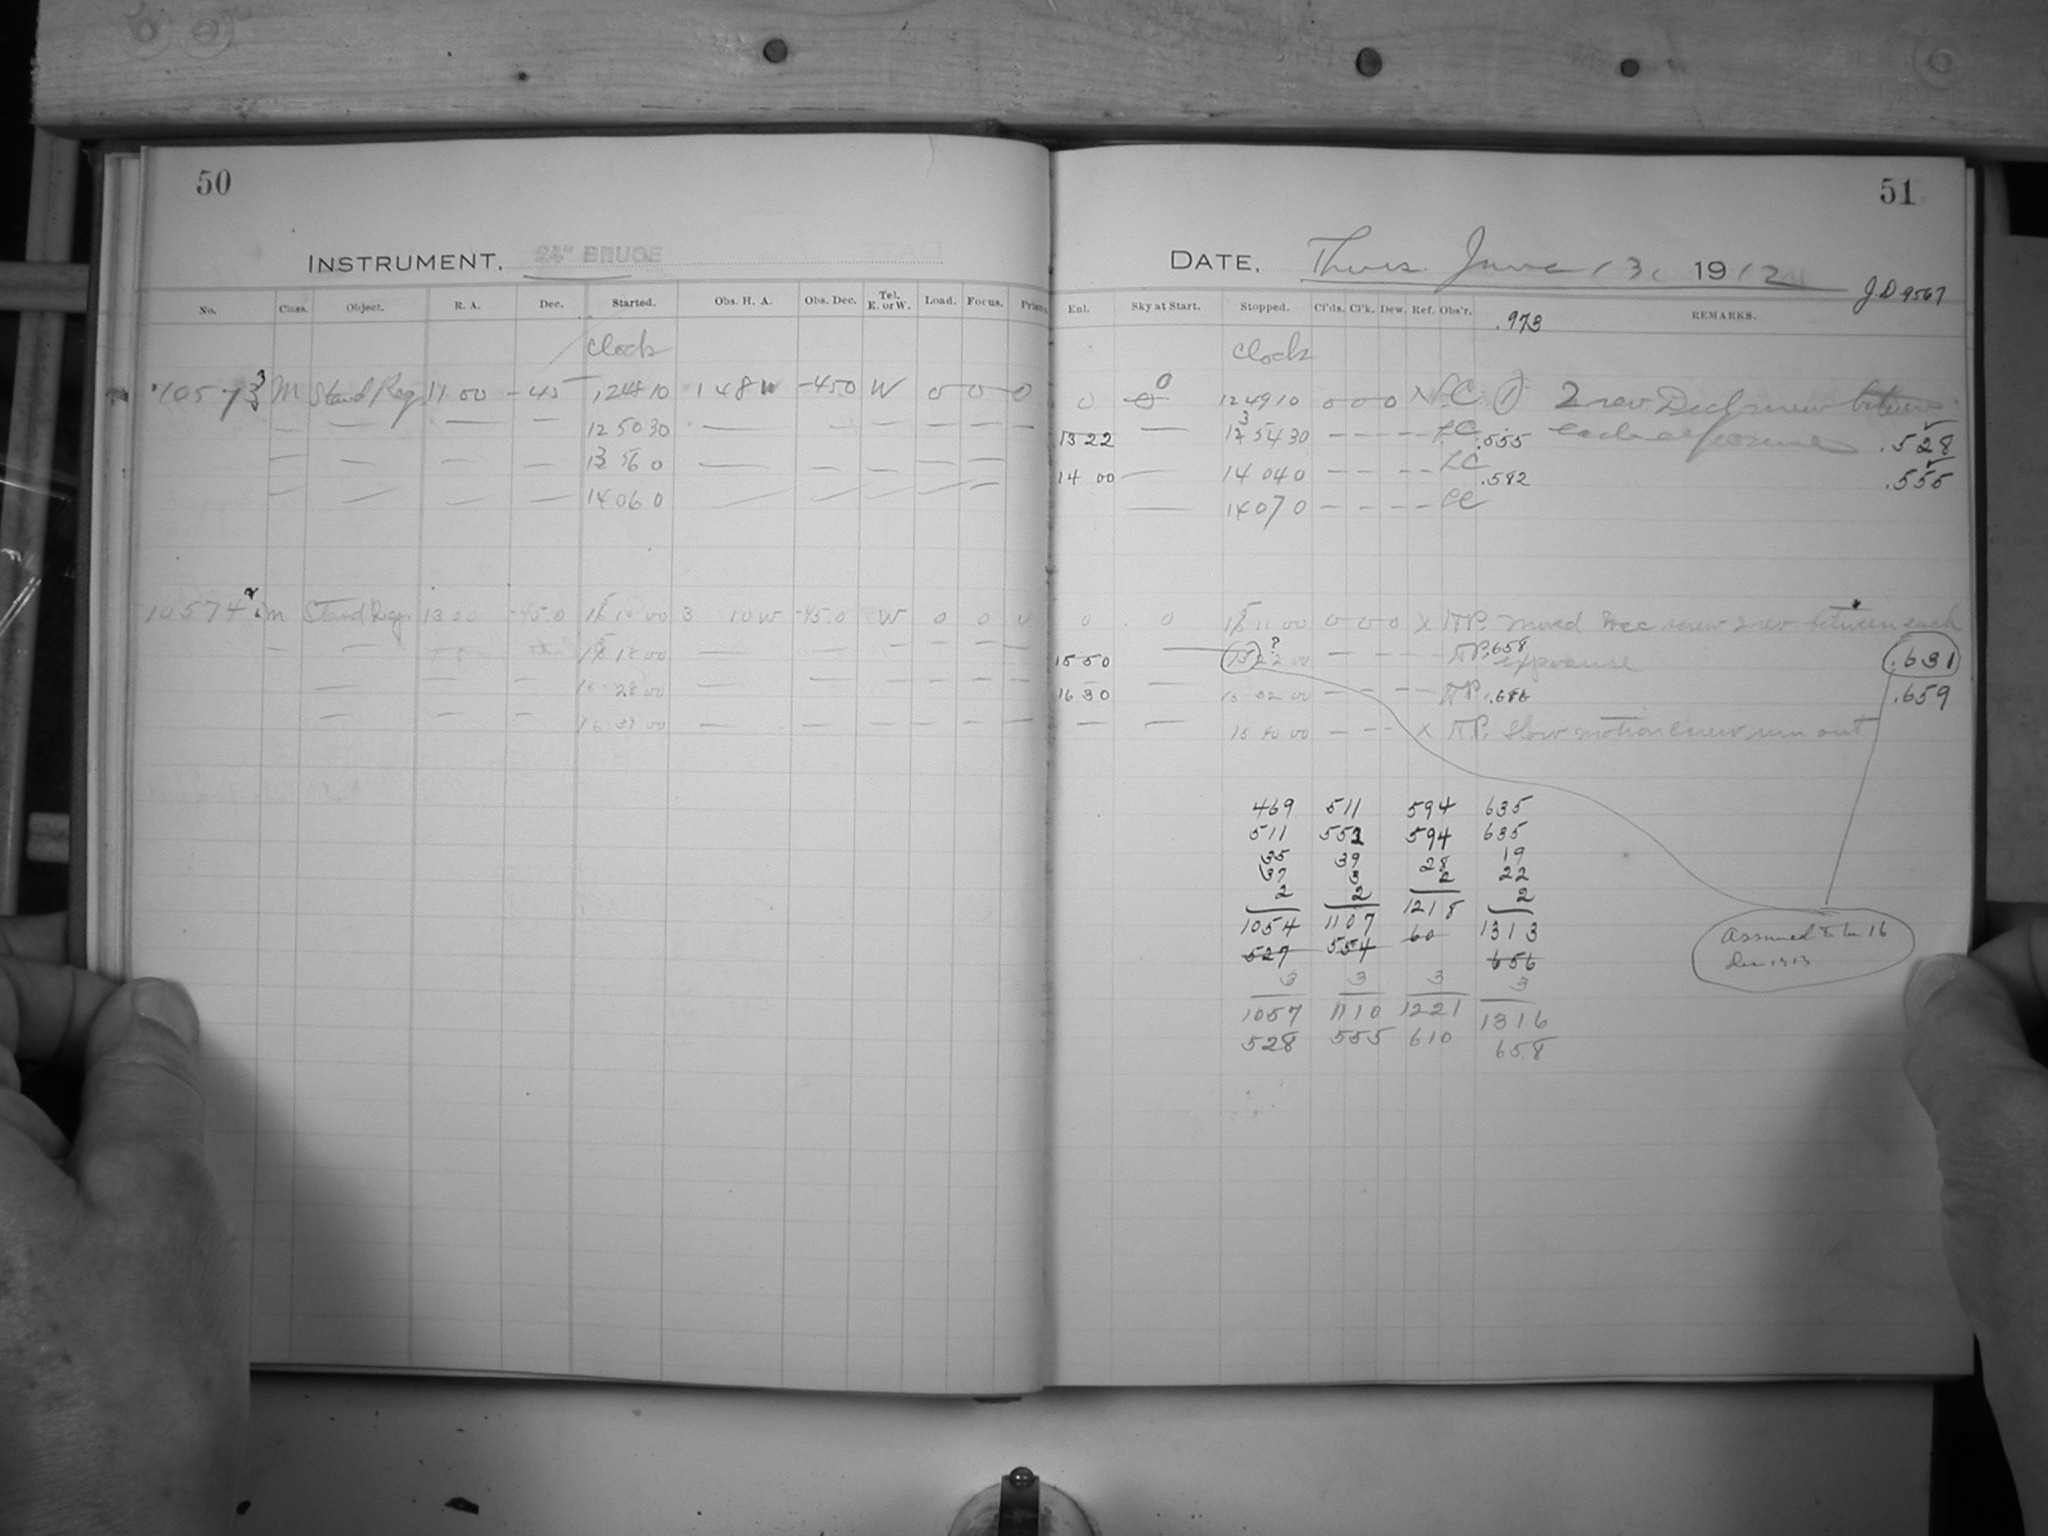 50
INSTRUMENT. 24" BRUCE
No. Class. Object. R. A. Dec. Started. Obs. H. A. Obs. Dec. Tel. E. or W. Load. Focus. Prism.
Clock
10573 3 M Stand Reg. 11 00 -45 12 48 10 1 48 W -45 0 W 0 0 0
— — — — 12 50 30 — — — — — —
— — — — 13 56 0 — — — — —
— — — — 14 06 0 — — — — —
10574 2 M Stand Reg. 13 00 -45.0 15 10 00 3 10 W -45.0 W 0 0 0
— — 18 00 — — — — — —
— — — 28 00 — — — — — —
— — — 16 39 00 — — — — — —
51
DATE. Thurs. June 13, 1912
J.D 9567
Enl. Sky at Start. Stopped. Cl'ds. Cl'k. Dew. Ref. Obs'r. REMARKS.
.973
Clock
0 0 12 49 10 0 0 0 2 rev. Decl screw between
13 22 — 13 54 30 — — — — .555 each exposure .528
14 00 — 14 04 0 — — — — .582 .555
— 14 07 0 — — — —
0 0 15 11 00 0 0 0 X N.P. Moved Dec screw 2 rev between each
15 50 — 15 ? 22 00 — — — — N.P. .658 exposure .631
16 30 — 16 32 00 — — — — N.P. .686 .659
— — 16 40 00 — — — X N.P. Slow motion screw run out
469 511 594 635
511 552 594 635
35 39 28 19
37 3 2 22
2 2 2
1054 1107 1218 1313
527 554 60 656
3 3 3 3
1057 1110 1221 1316
528 555 610 658
Assumed to be 16